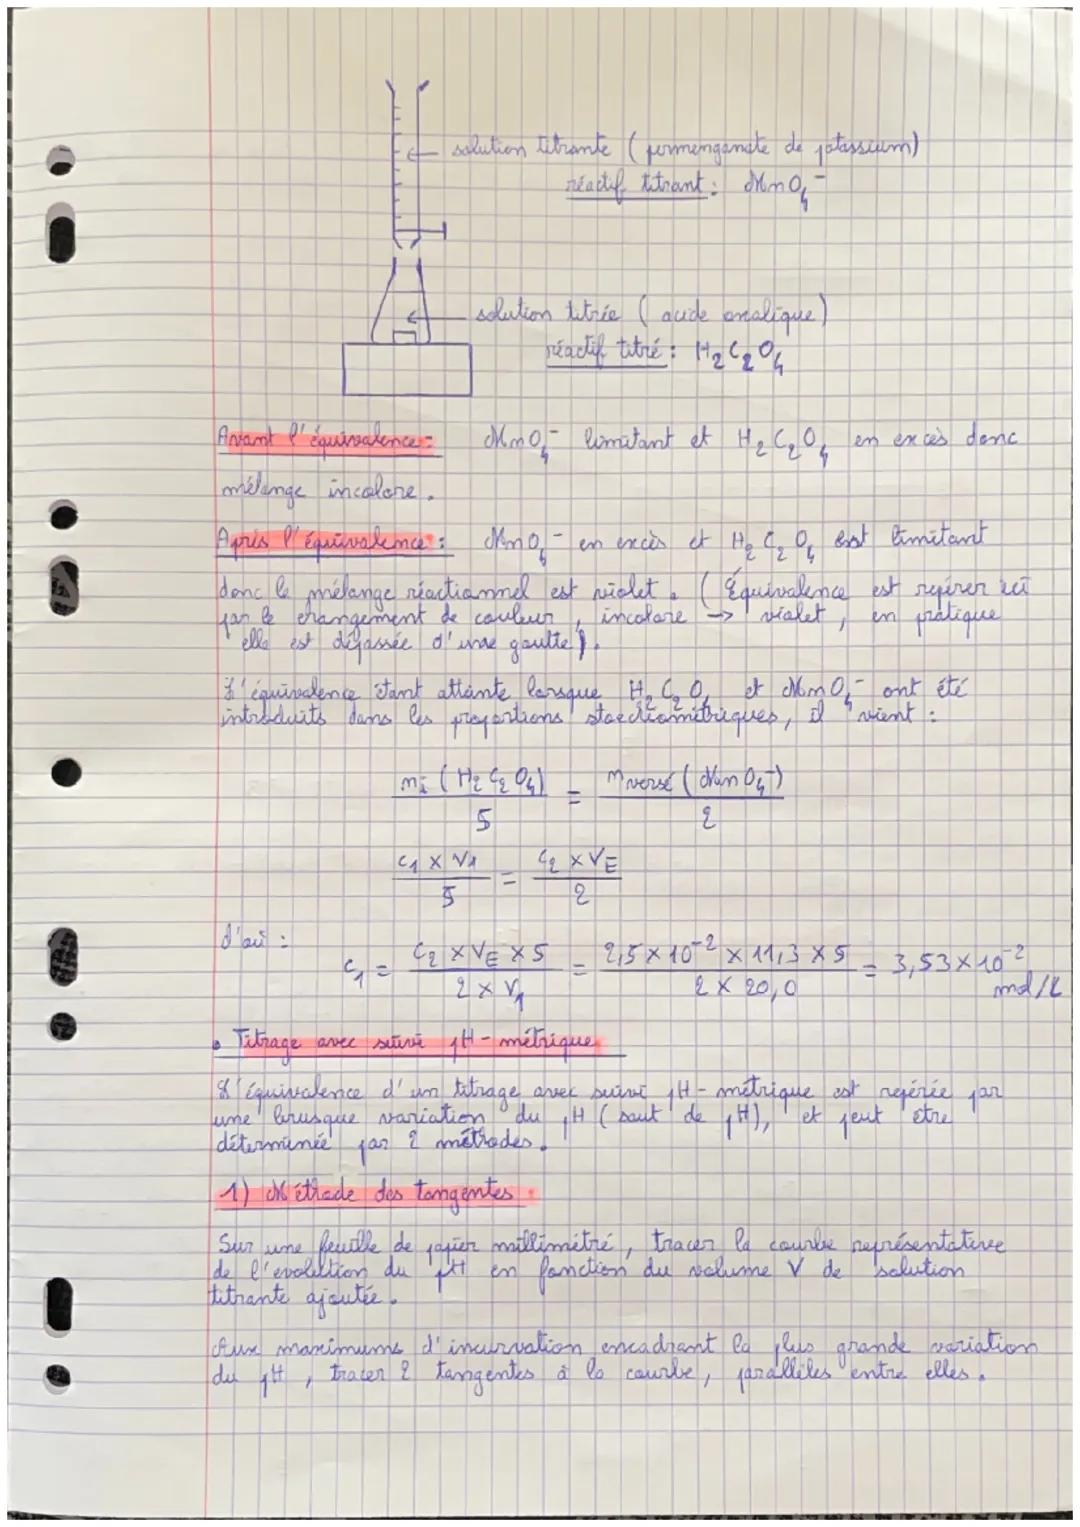 solution titrante ( permenganate de potassium)
réactif titrant : MnO₄⁻
solution titrée ( acide oxalique)
réactif titré : H₂C₂O₄
Avant l'équivalence : MnO₄⁻ limitant et H₂C₂O₄ en excès donc
mélange incolore.
Après l'équivalence : MnO₄⁻ en excès et H₂C₂O₄ est limitant
donc le mélange réactionnel est violet. ( Équivalence est repérer ici
par le changement de couleur, incolore → violet, en pratique
elle est dépassée d'une goutte ).
L'équivalence étant atteinte lorsque H₂C₂O₄ et MnO₄⁻ ont été
introduits dans les proportions stoechiométriques, il vient :
nᵢ ( H₂C₂O₄) / 5 = n versé ( MnO₄⁻) / 2
C₁ × V₁ / 5 = C₂ × VE / 2
d'où :
C₁ = C₂ × VE × 5 / 2 × V₁ = 2,5 × 10⁻² × 11,3 × 5 / 2 × 20,0 = 3,53 × 10⁻² mol/L
• Titrage avec suivi pH-métrique
L'équivalence d'un titrage avec suivi pH-métrique est repérée par
une brusque variation du pH ( saut de pH), et peut être
déterminée par 2 méthodes.
1) Méthode des tangentes :
Sur une feuille de papier millimétré, tracer la courbe représentative
de l'évolution du pH en fonction du volume V de solution
titrante ajoutée.
Aux maximums d'incurvation encadrant la plus grande variation
du pH, tracer 2 tangentes à la courbe, parallèles entre elles.